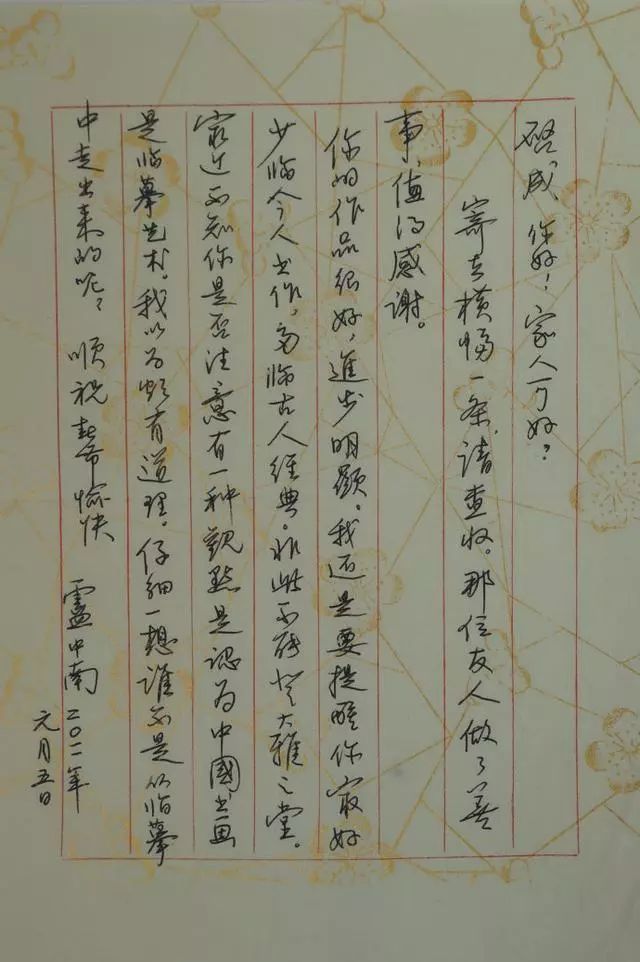 你好！家人可好？
寄去横幅一条，请查收。那位友人做了善
事，值得感谢。
你的作品很好，進步明顯。我还是要提醒你最好
少临今人书作，多临古人经典。非此不能登大雅之堂。
最近不知你是否注意有一种觀點是认为中國书画
是临摹艺术。我以为颇有道理。仔细一想谁不是从临摹
中走出来的呢？顺祝 春节愉快 盧中南 二〇一一年
元月五日